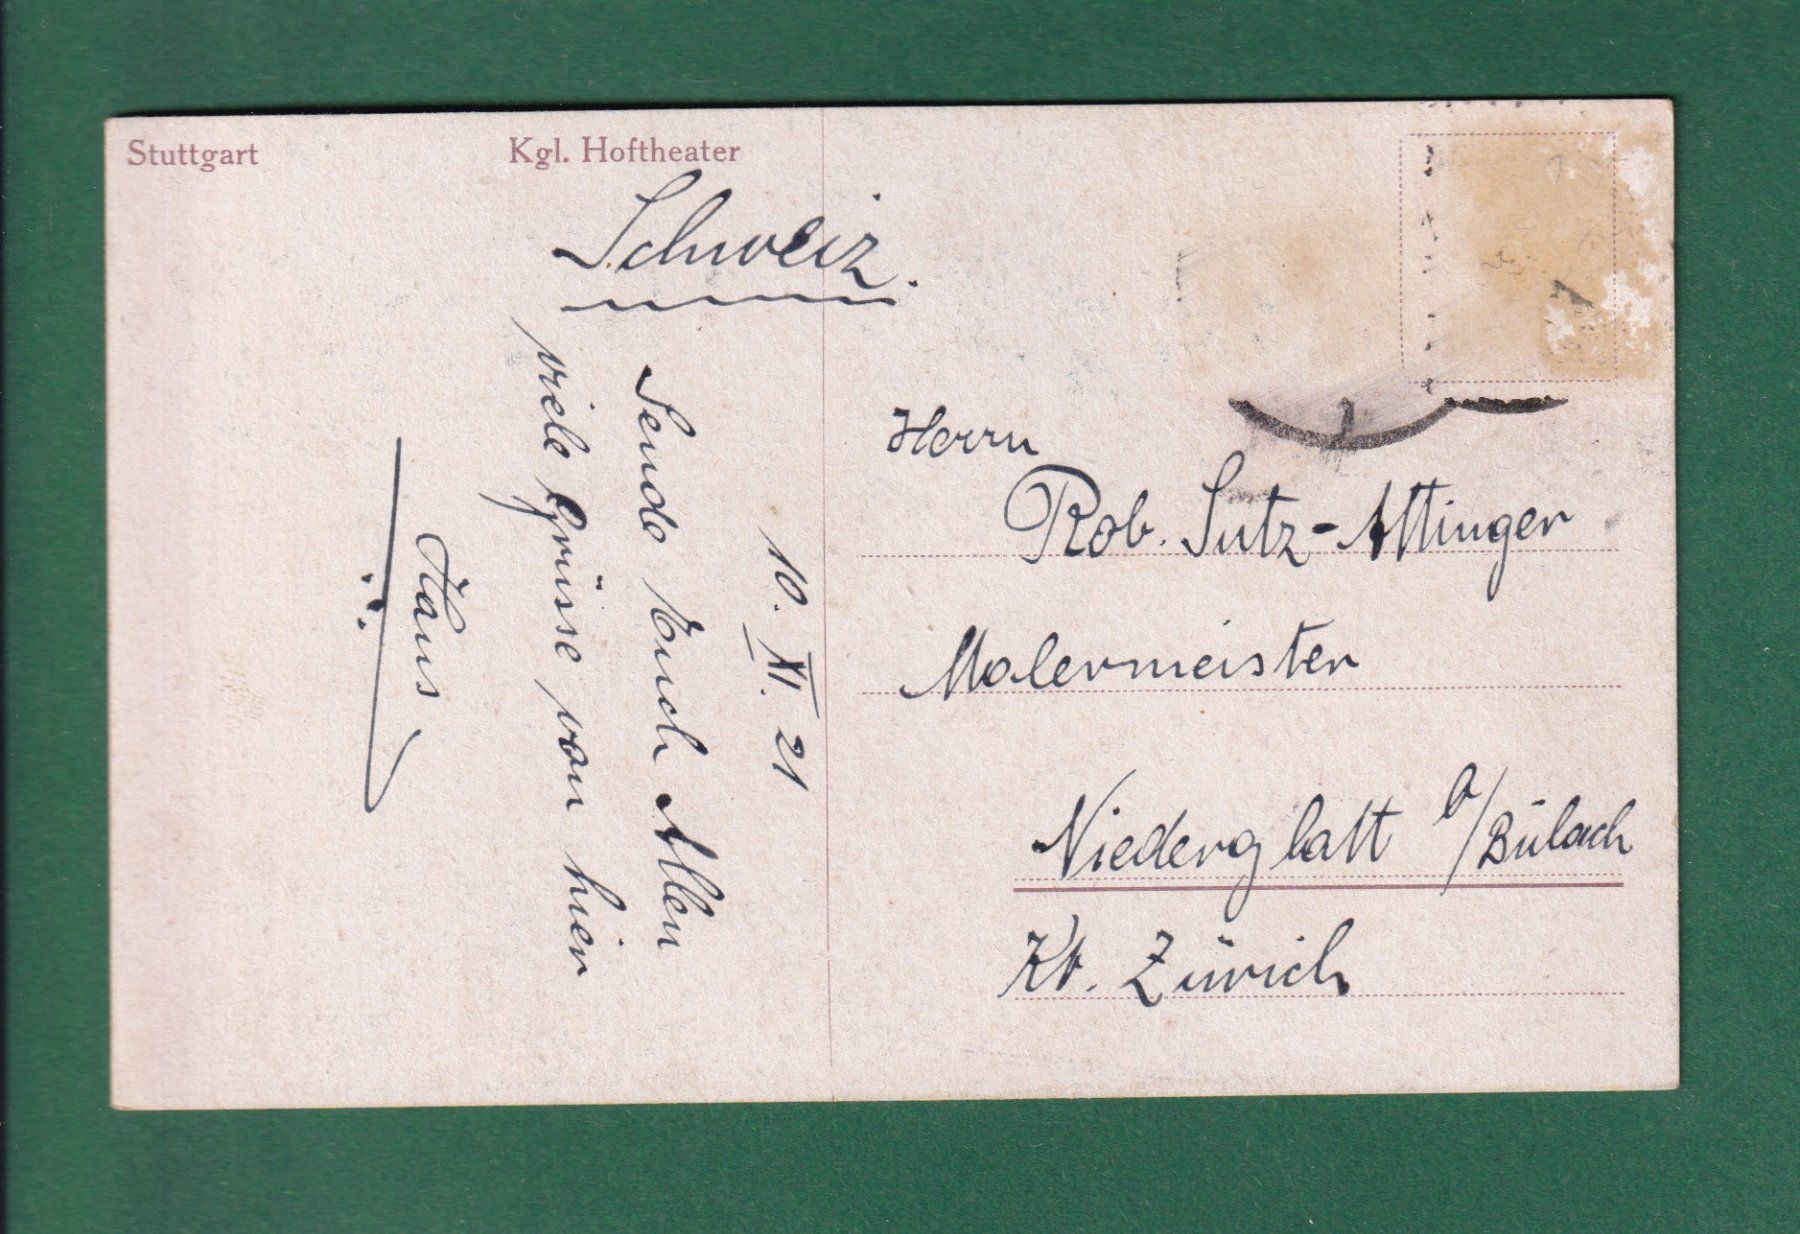 Stuttgart Kgl. Hoftheater
Schweiz.
10. XI. 21
Sende Euch Allen
viele Grüsse von hier
Hans
Herrn
Rob. Sutz-Attinger
Malermeister
Niederglatt b/Bülach
Kt. Zürich